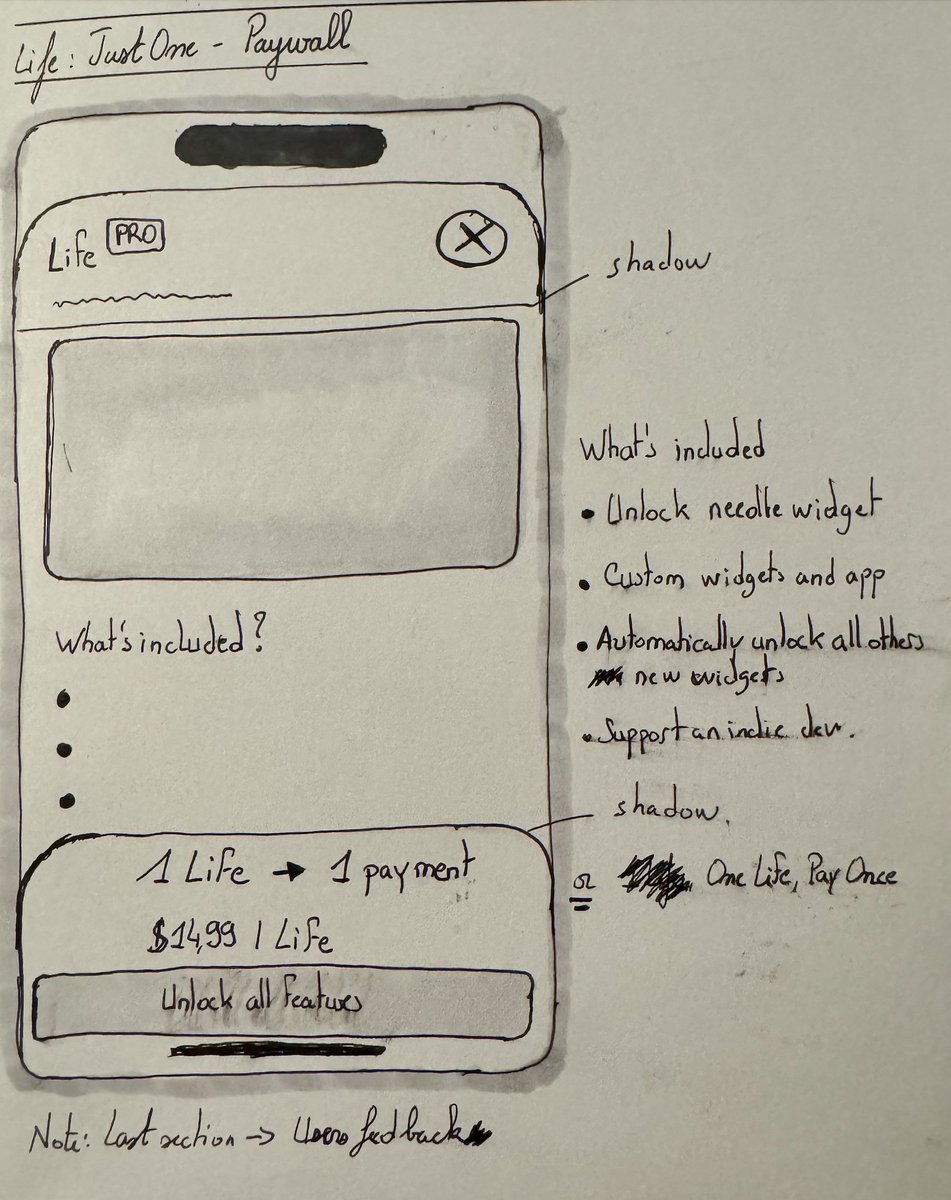 Life: JustOne - Paywall
Life PRO
shadow
What's included
• Unlock needle widget
• Custom widgets and app
• Automatically unlock all others
new widgets
• Support an indie dev.
What's included?
shadow.
1 Life → 1 payment
or One Life, Pay Once
$14,99 / Life
Unlock all features
Note: Last section → Users feedback